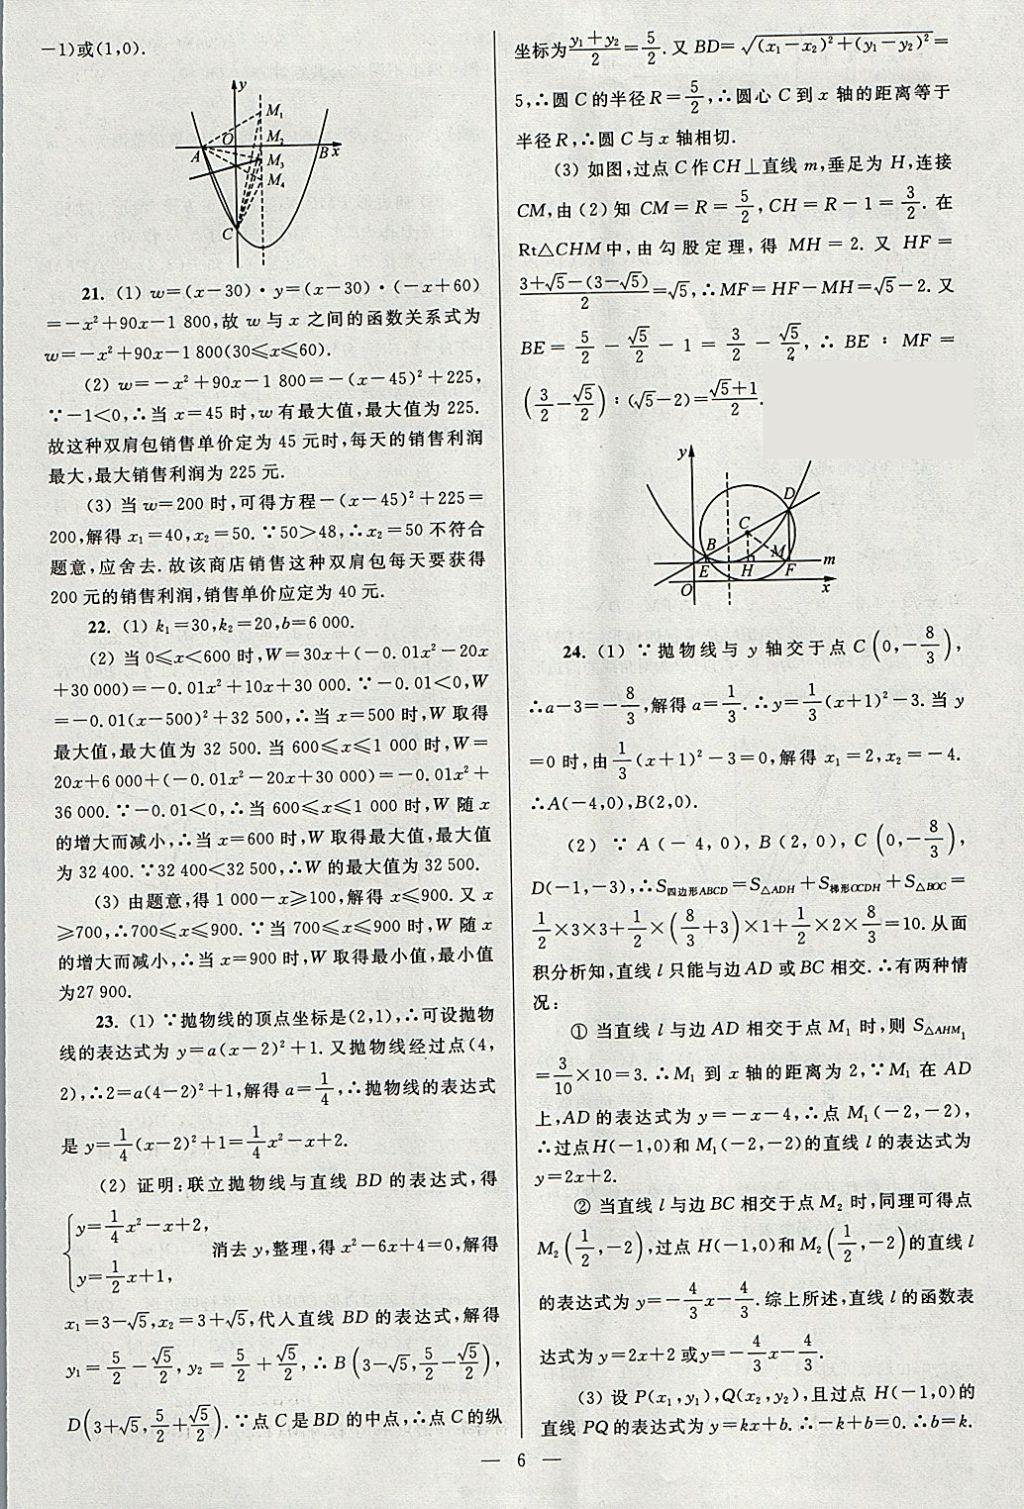 -1)或(1,0).
y
M₁
O
M₂
A
B
x
M₃
M₄
C
21. (1) w=(x-30)·y=(x-30)·(-x+60)
=-x²+90x-1 800,故 w 与 x 之间的函数关系式为
w=-x²+90x-1 800(30≤x≤60).
(2) w=-x²+90x-1 800=-(x-45)²+225,
∵-1<0,∴当 x=45 时,w 有最大值,最大值为 225.
故这种双肩包销售单价定为 45 元时,每天的销售利润
最大,最大销售利润为 225 元.
(3) 当 w=200 时,可得方程-(x-45)²+225=
200,解得 x₁=40,x₂=50.∵50>48,∴x₂=50 不符合
题意,应舍去.故该商店销售这种双肩包每天要获得
200 元的销售利润,销售单价应定为 40 元.
22. (1) k₁=30,k₂=20,b=6 000.
(2) 当 0≤x<600 时,W=30x+(-0.01x²-20x
+30 000)=-0.01x²+10x+30 000.∵-0.01<0,W
=-0.01(x-500)²+32 500,∴当 x=500 时,W 取得
最大值,最大值为 32 500.当 600≤x≤1 000 时,W=
20x+6 000+(-0.01x²-20x+30 000)=-0.01x²+
36 000.∵-0.01<0,∴当 600≤x≤1 000 时,W 随 x
的增大而减小,∴当 x=600 时,W 取得最大值,最大值
为 32 400.∵32 400<32 500,∴W 的最大值为 32 500.
(3) 由题意,得 1 000-x≥100,解得 x≤900.又 x
≥700,∴700≤x≤900.∵当 700≤x≤900 时,W 随 x
的增大而减小,∴当 x=900 时,W 取得最小值,最小值
为27 900.
23. (1) ∵抛物线的顶点坐标是(2,1),∴可设抛物
线的表达式为 y=a(x-2)²+1.又抛物线经过点(4,
2),∴2=a(4-2)²+1,解得 a=1/4,∴抛物线的表达式
是 y=1/4(x-2)²+1=1/4x²-x+2.
(2) 证明:联立抛物线与直线 BD 的表达式,得
{y=1/4x²-x+2,
y=1/2x+1, 消去 y,整理,得 x²-6x+4=0,解得
x₁=3-√5,x₂=3+√5,代人直线 BD 的表达式,解得
y₁=5/2-√5/2,y₂=5/2+√5/2,∴B(3-√5,5/2-√5/2),
D(3+√5,5/2+√5/2).∵点 C 是 BD 的中点,∴点 C 的纵
坐标为(y₁+y₂)/2=5/2.又 BD=√((x₁-x₂)²+(y₁-y₂)²)=
5,∴圆 C 的半径 R=5/2,∴圆心 C 到 x 轴的距离等于
半径 R,∴圆 C 与 x 轴相切.
(3) 如图,过点 C 作 CH⊥直线 m,垂足为 H,连接
CM,由(2)知 CM=R=5/2,CH=R-1=3/2.在
Rt△CHM 中,由勾股定理,得 MH=2.又 HF=
(3+√5-(3-√5))/2=√5,∴MF=HF-MH=√5-2.又
BE=5/2-√5/2-1=3/2-√5/2,∴BE:MF=
(3/2-√5/2):(√5-2)=(√5+1)/2.
y
D
C
B
M
m
E
H
F
O
x
24. (1) ∵抛物线与 y 轴交于点 C(0,-8/3),
∴a-3=-8/3,解得 a=1/3.∴y=1/3(x+1)²-3.当 y
=0 时,由1/3(x+1)²-3=0,解得 x₁=2,x₂=-4.
∴A(-4,0),B(2,0).
(2) ∵A(-4,0),B(2,0),C(0,-8/3),
D(-1,-3),∴S四边形ABCD=S△ADH+S梯形OCDH+S△BOC=
1/2×3×3+1/2×(8/3+3)×1+1/2×2×8/3=10.从面
积分析知,直线 l 只能与边 AD 或 BC 相交.∴有两种情
况:
① 当直线 l 与边 AD 相交于点 M₁ 时,则 S△AHM₁
=3/10×10=3.∴M₁ 到 x 轴的距离为 2,∵M₁ 在 AD
上,AD 的表达式为 y=-x-4,∴点 M₁(-2,-2),
∴过点H(-1,0)和 M₁(-2,-2)的直线 l 的表达式为
y=2x+2.
② 当直线 l 与边 BC 相交于点 M₂ 时,同理可得点
M₂(1/2,-2),过点 H(-1,0)和 M₂(1/2,-2)的直线 l
的表达式为 y=-4/3x-4/3.综上所述,直线 l 的函数表
达式为 y=2x+2 或y=-4/3x-4/3.
(3) 设 P(x₁,y₁),Q(x₂,y₂),且过点 H(-1,0)的
直线 PQ 的表达式为 y=kx+b.∴-k+b=0.∴b=k.
— 6 —